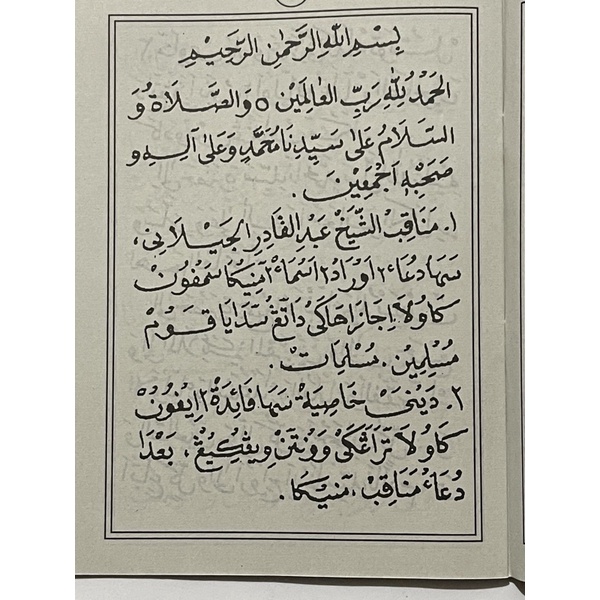 بِسْمِ اللهِ الرَّحْمٰنِ الرَّحِيْمِ
الحَمْدُ لِلّٰهِ رَبِّ العَالَمِيْنَ ٥ وَالصَّلَاةُ وَ
السَّلَامُ عَلَى سَيِّدِنَا مُحَمَّدٍ وَعَلَى آلِهِ و
صَحْبِهِ اَجْمَعِيْنَ .
١. مَنَاقِبْ الشَّيْخْ عَبْدِ القَادِرِ الجَيْلَانِي،
سَهَا دُعَاء٢ اَوْرَاد٢ اَسْمَاء٢ مَنِيْكَا سَمْفُوْنْ
كَاوُلَا اِجَازَاهَاكَى دَاتَڠْ سُدَايَا قَوُمْ
مُسْلِمِيْن، مُسْلِمَاتْ .
٢. دَيْنَيْ خَاصِيَةْ سَهَا فَائِدَة٢ اِيْفُوْنْ
كَاوُلَا تْرَاڠَكَى وَوْنْتَنْ وِيڠْكِيْڠْ، بَعْدَا
دُعَاءْ مَنَاقِبْ، مَنِيْكَا .